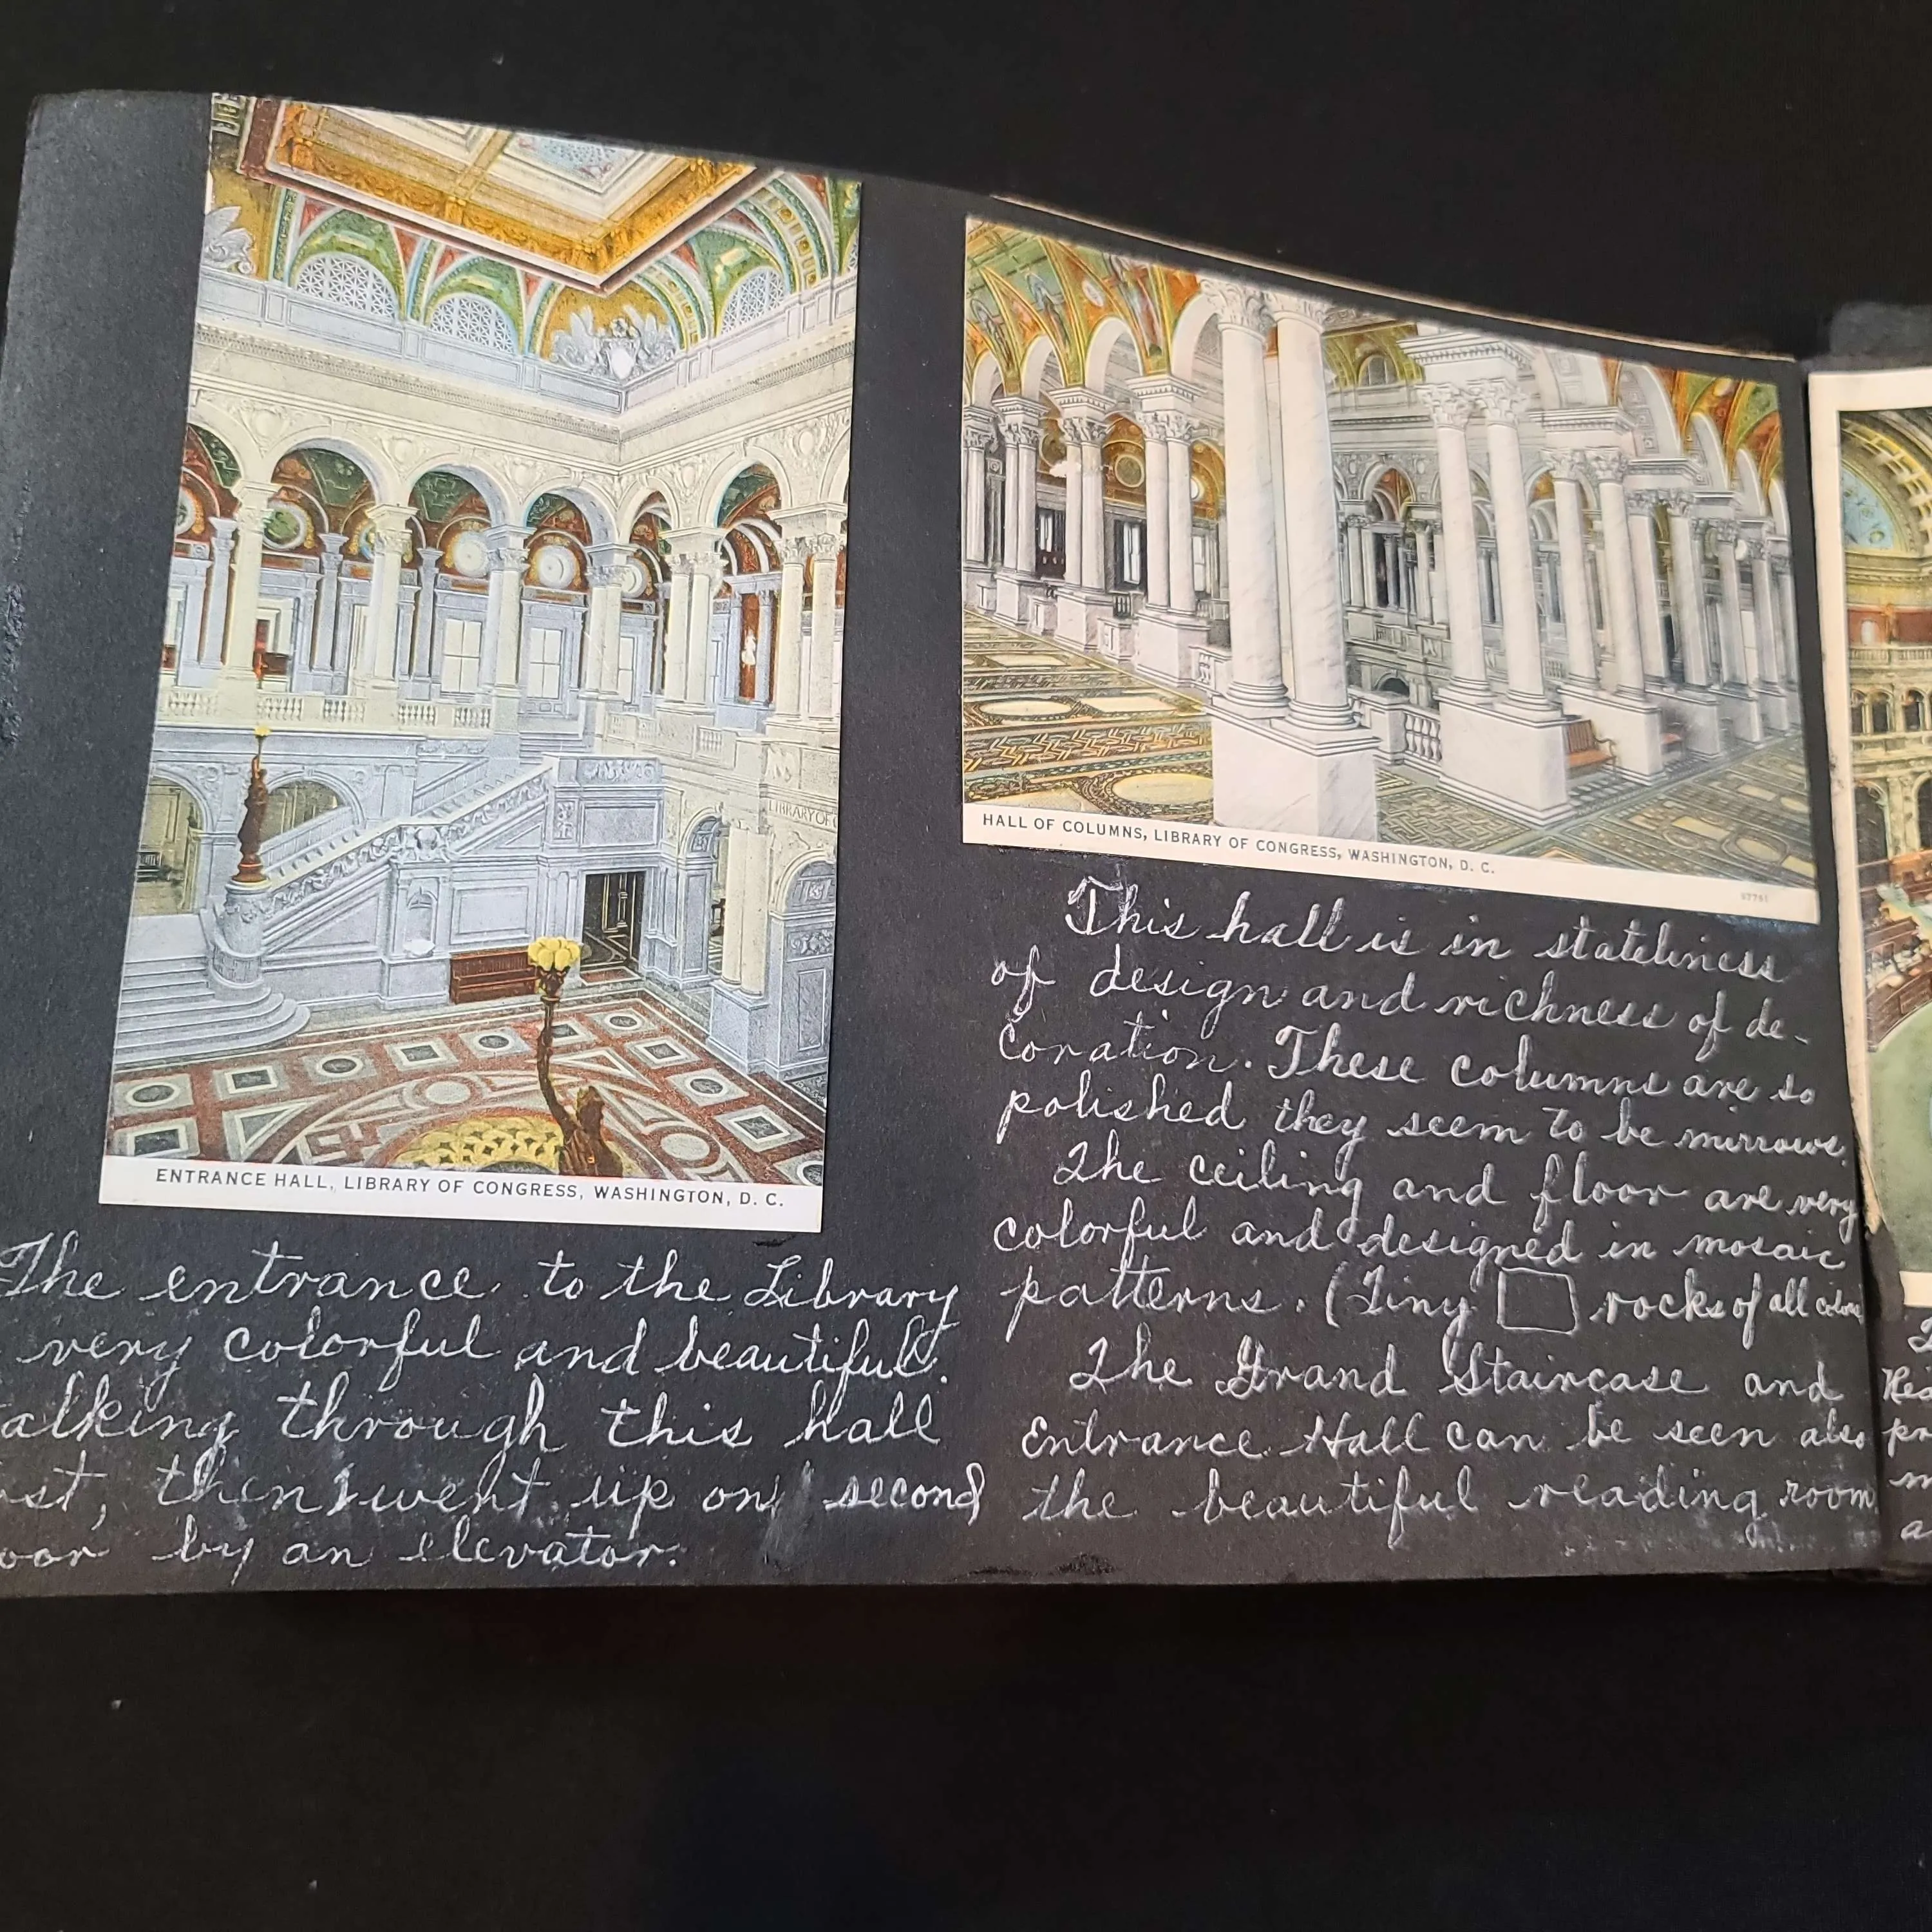 LIBRARY OF
ENTRANCE HALL, LIBRARY OF CONGRESS, WASHINGTON, D. C.
The entrance to the Library
very colorful and beautiful.
alking through this hall
st, then I went up on second
oor by an elevator.
HALL OF COLUMNS, LIBRARY OF CONGRESS, WASHINGTON, D. C.
This hall is in stateliness
of design and richness of de-
coration. These columns are so
polished they seem to be mirrows.
The ceiling and floor are very
colorful and designed in mosaic
patterns. (Tiny rocks of all colors
The Grand Staircase and
Entrance Hall can be seen also
the beautiful reading room